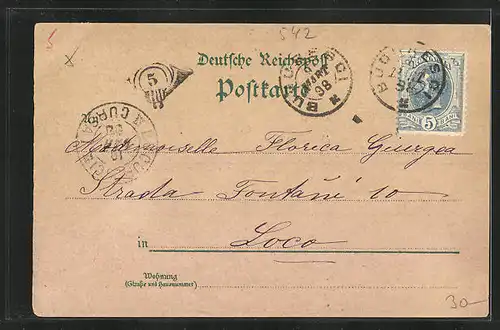 542
5
x
Deutsche Reichspost
Postkarte
5
BUCURESCI
98
BUCURESCI
BANI 5 BANI
CURSA
Mademoiselle Florica Giurgea
Strada Fontănĭ 10
in Loco
Wohnung
(Straße und Hausnummer)
30-